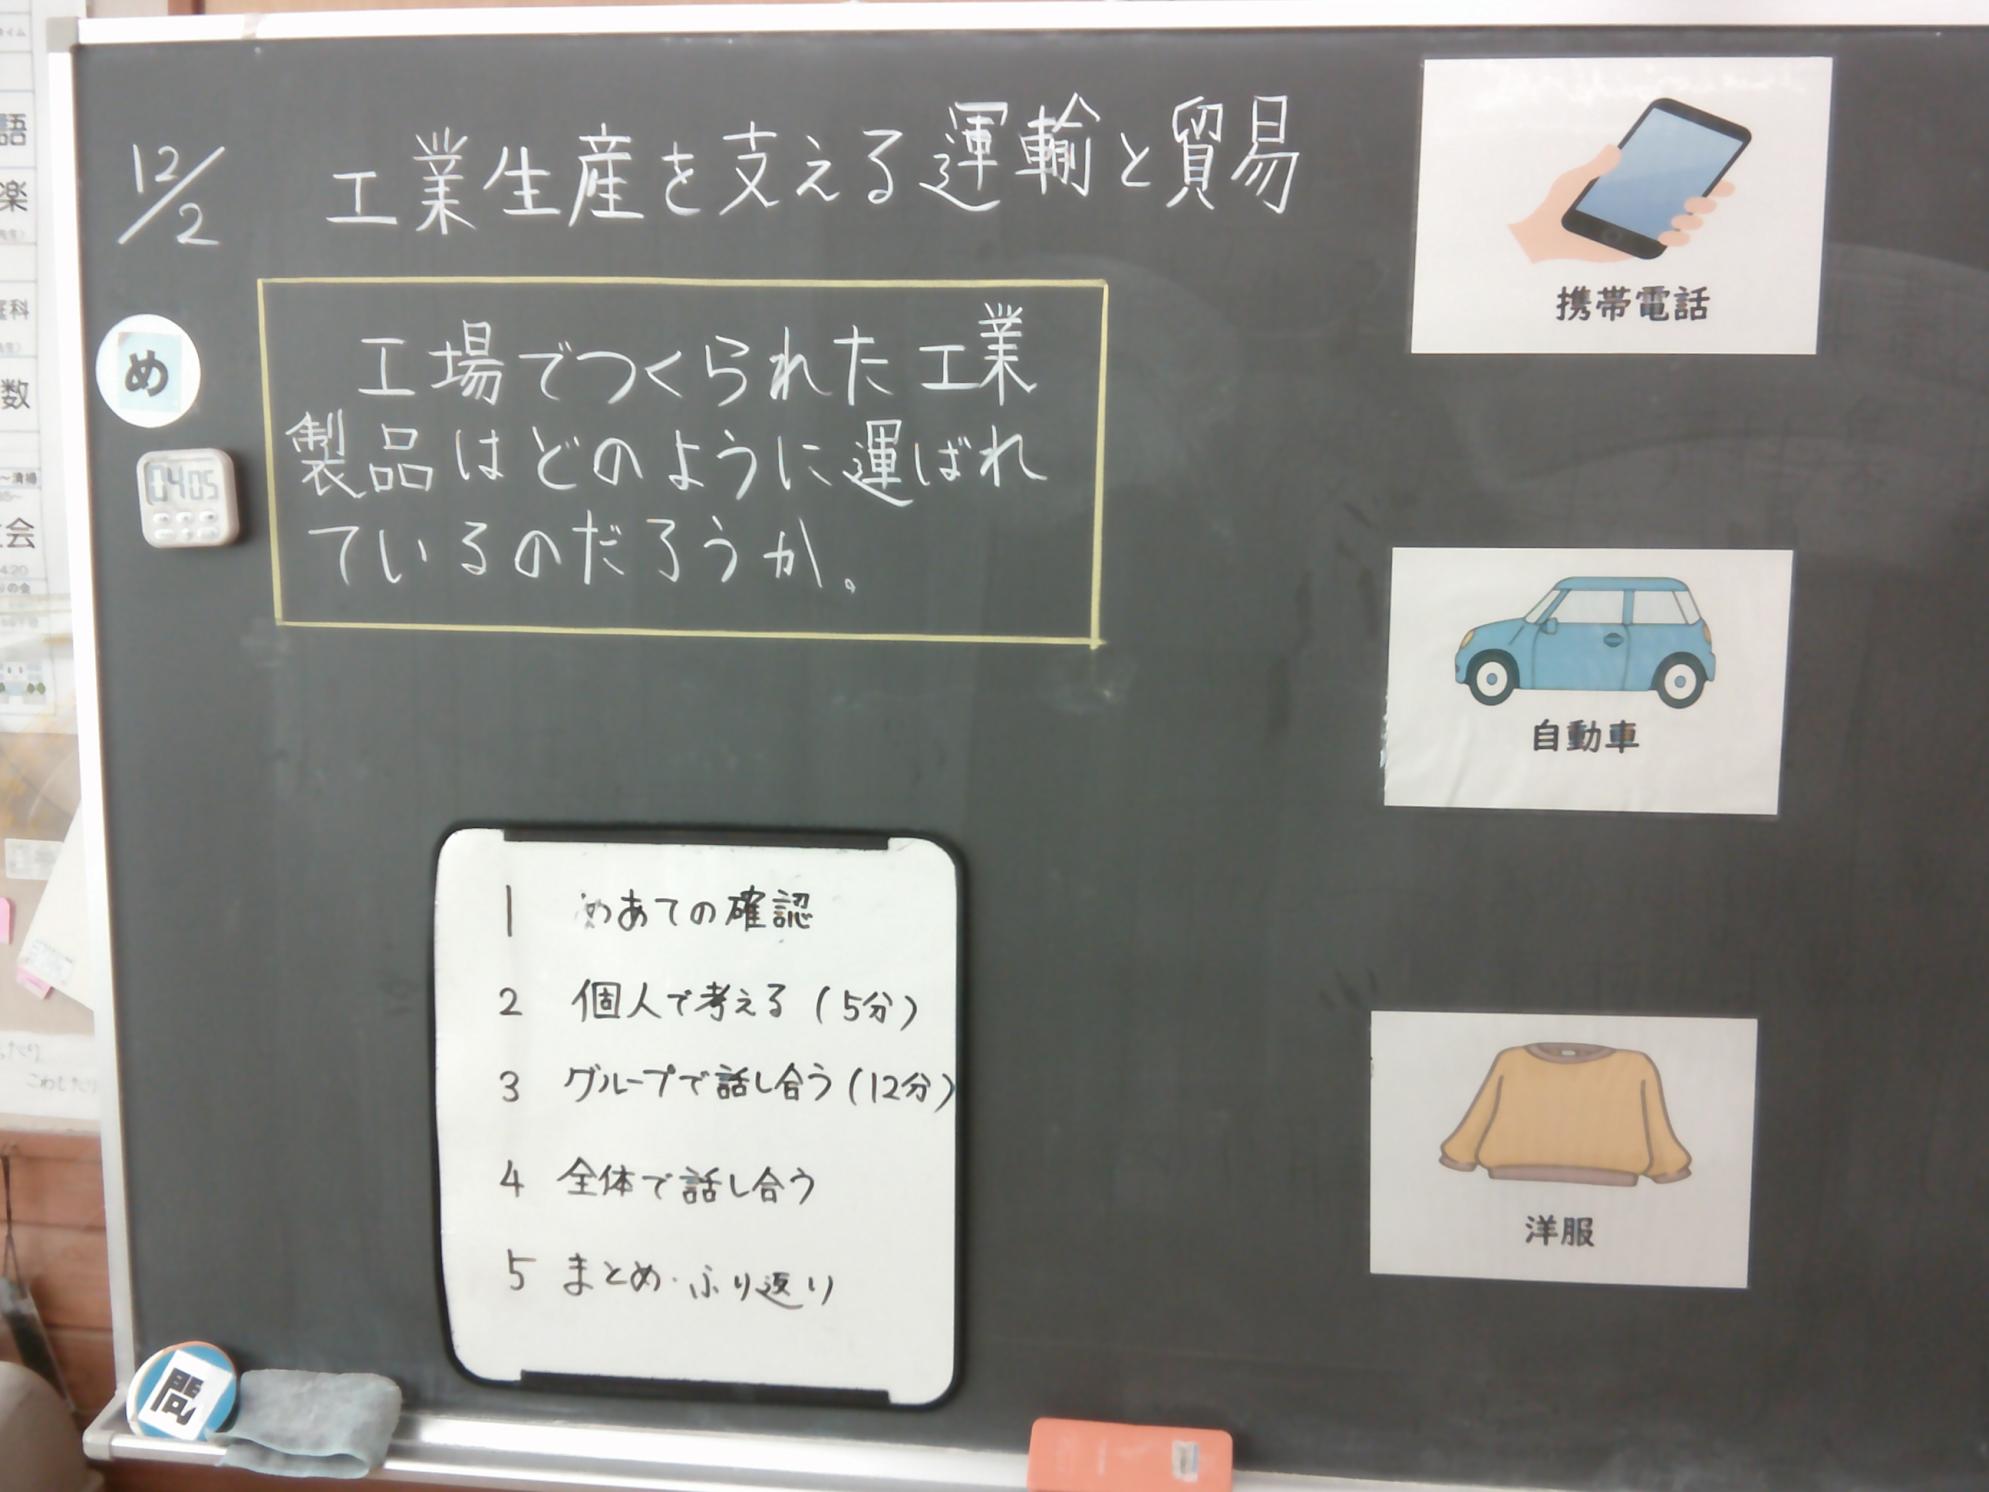 12/2
工業生産を支える運輸と貿易
め
工場でつくられた工業
製品はどのように運ばれ
ているのだろうか。
04 05
1 めあての確認
2 個人で考える(5分)
3 グループで話し合う(12分)
4 全体で話し合う
5 まとめ・ふり返り
携帯電話
自動車
洋服
問
語
楽
数
会